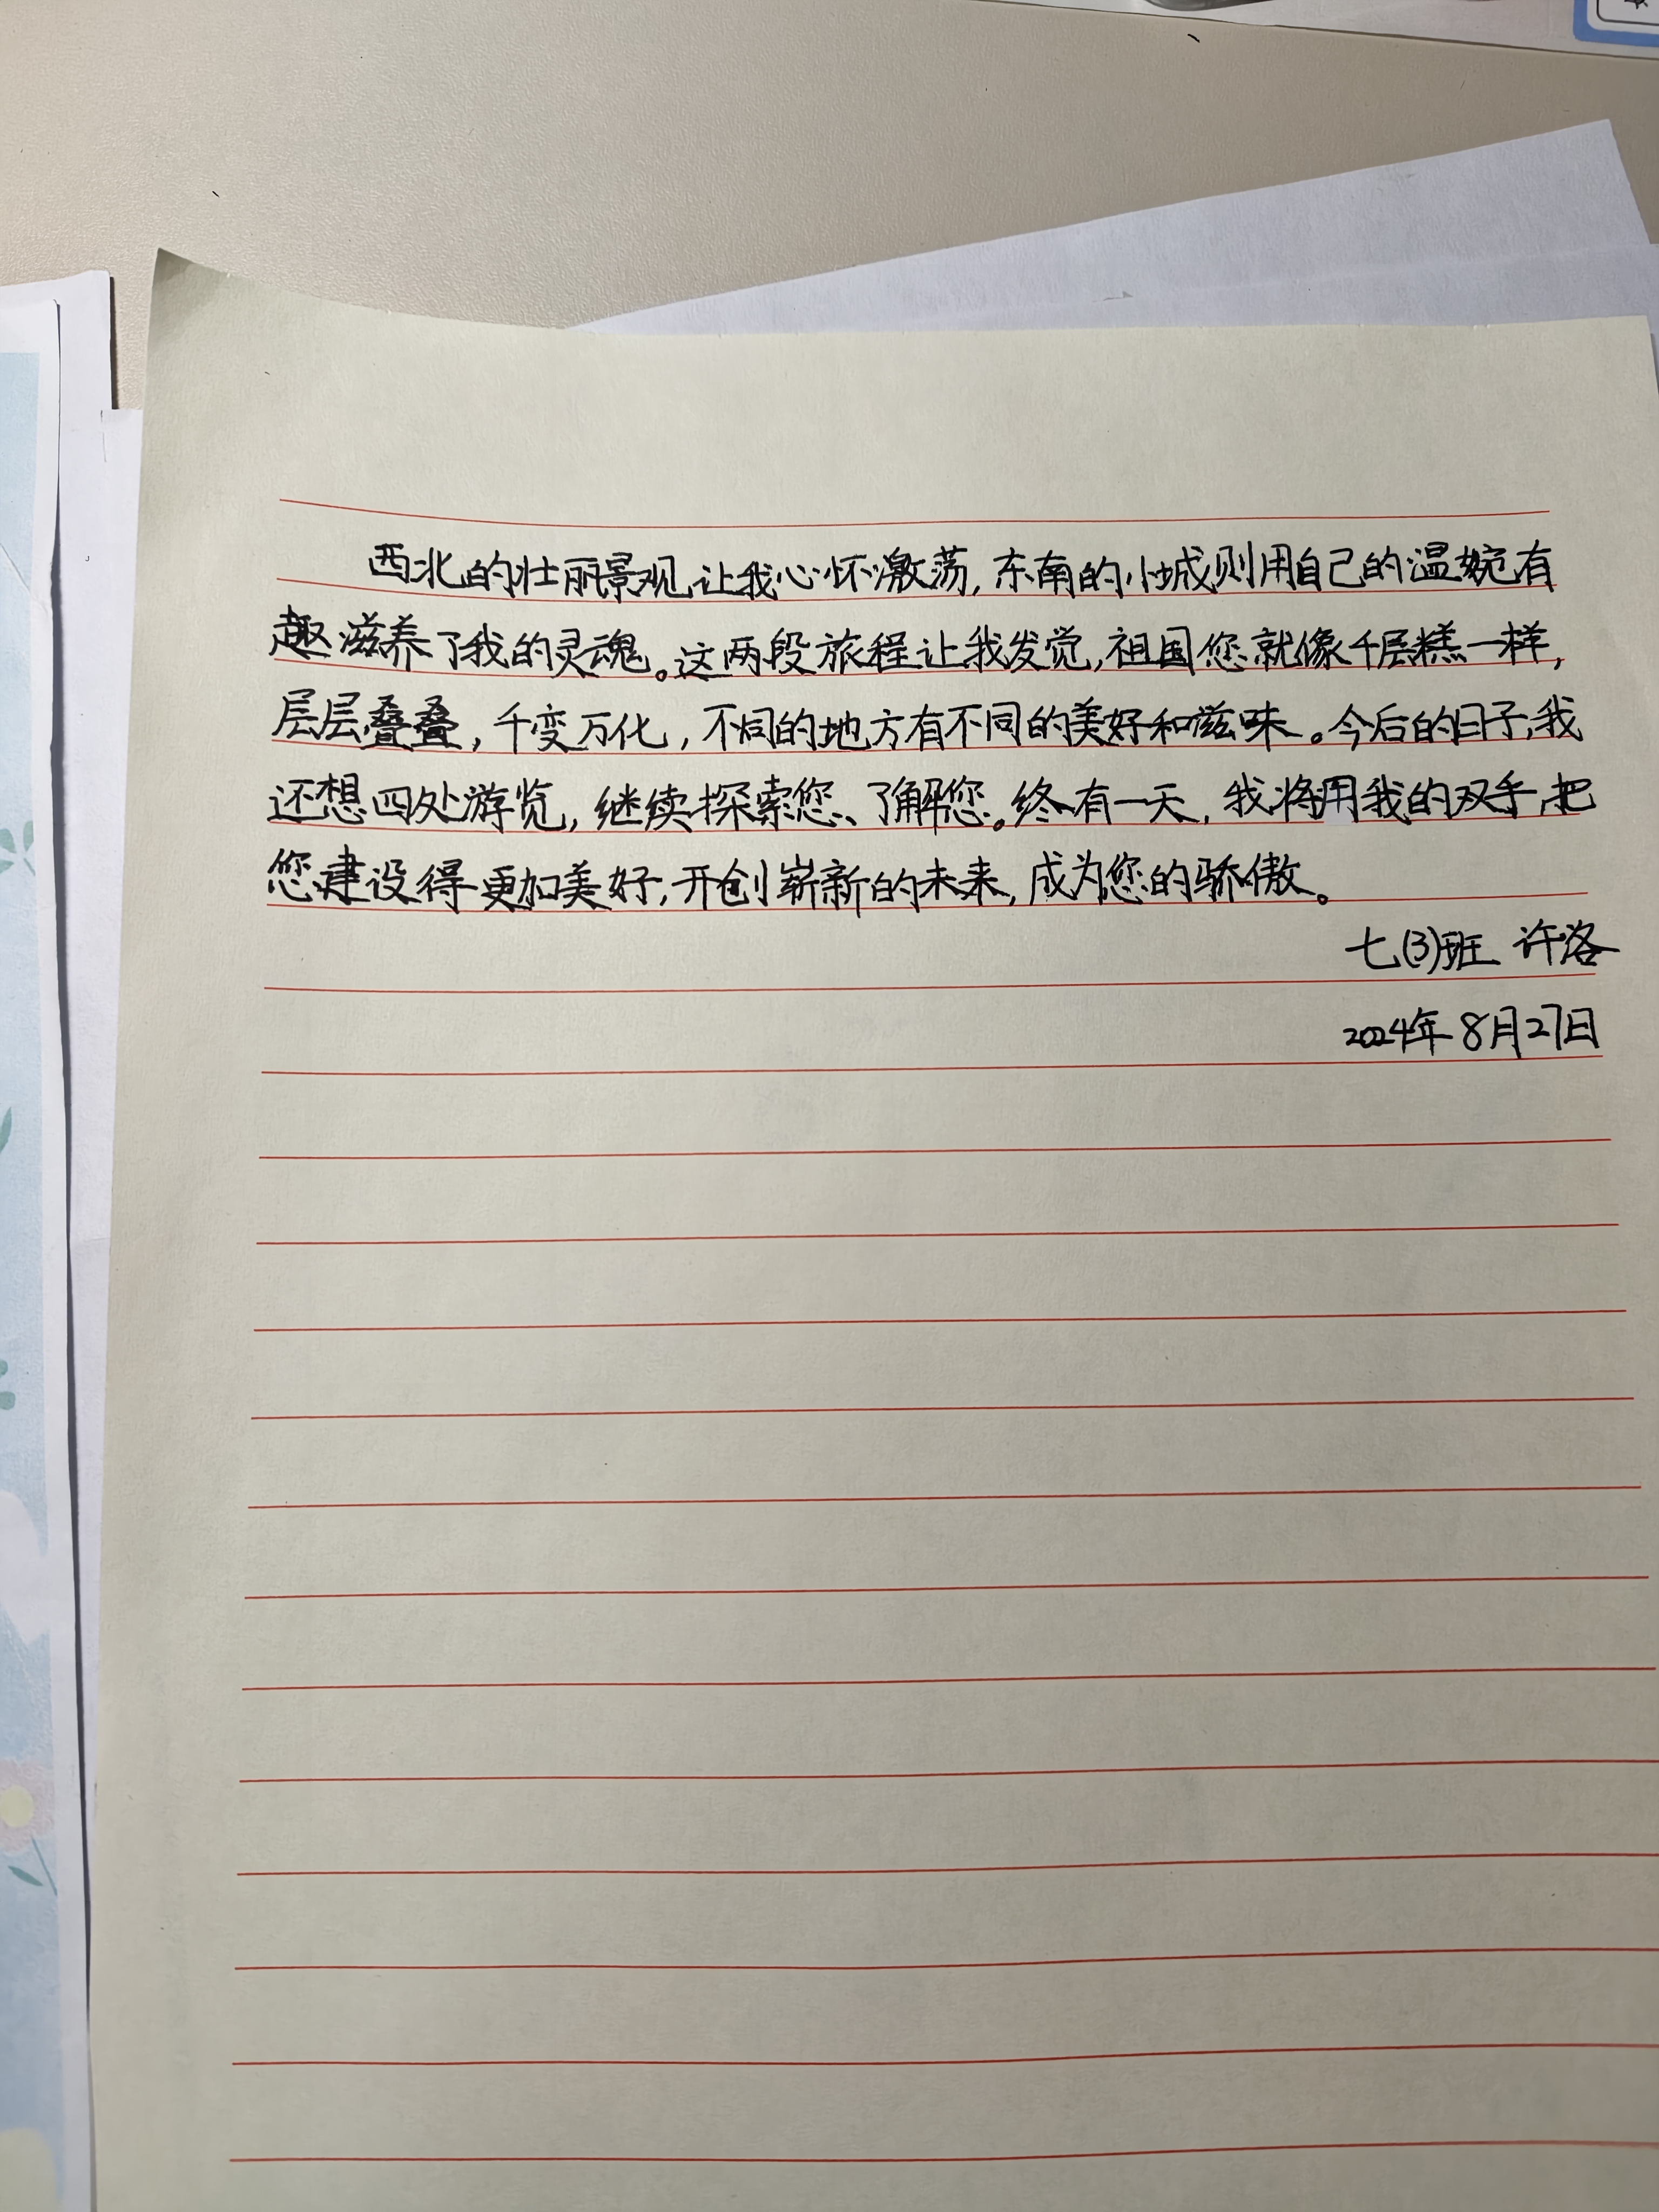 西北的壮丽景观让我心怀激荡,东南的小城则用自己的温婉有
趣滋养了我的灵魂。这两段旅程让我发觉,祖国您就像千层糕一样,
层层叠叠,千变万化,不同的地方有不同的美好和滋味。今后的日子,我
还想四处游览,继续探索您、了解您。终有一天,我将用我的双手,把
您建设得更加美好,开创崭新的未来,成为您的骄傲。
七(3)班 许洛
2024年8月27日